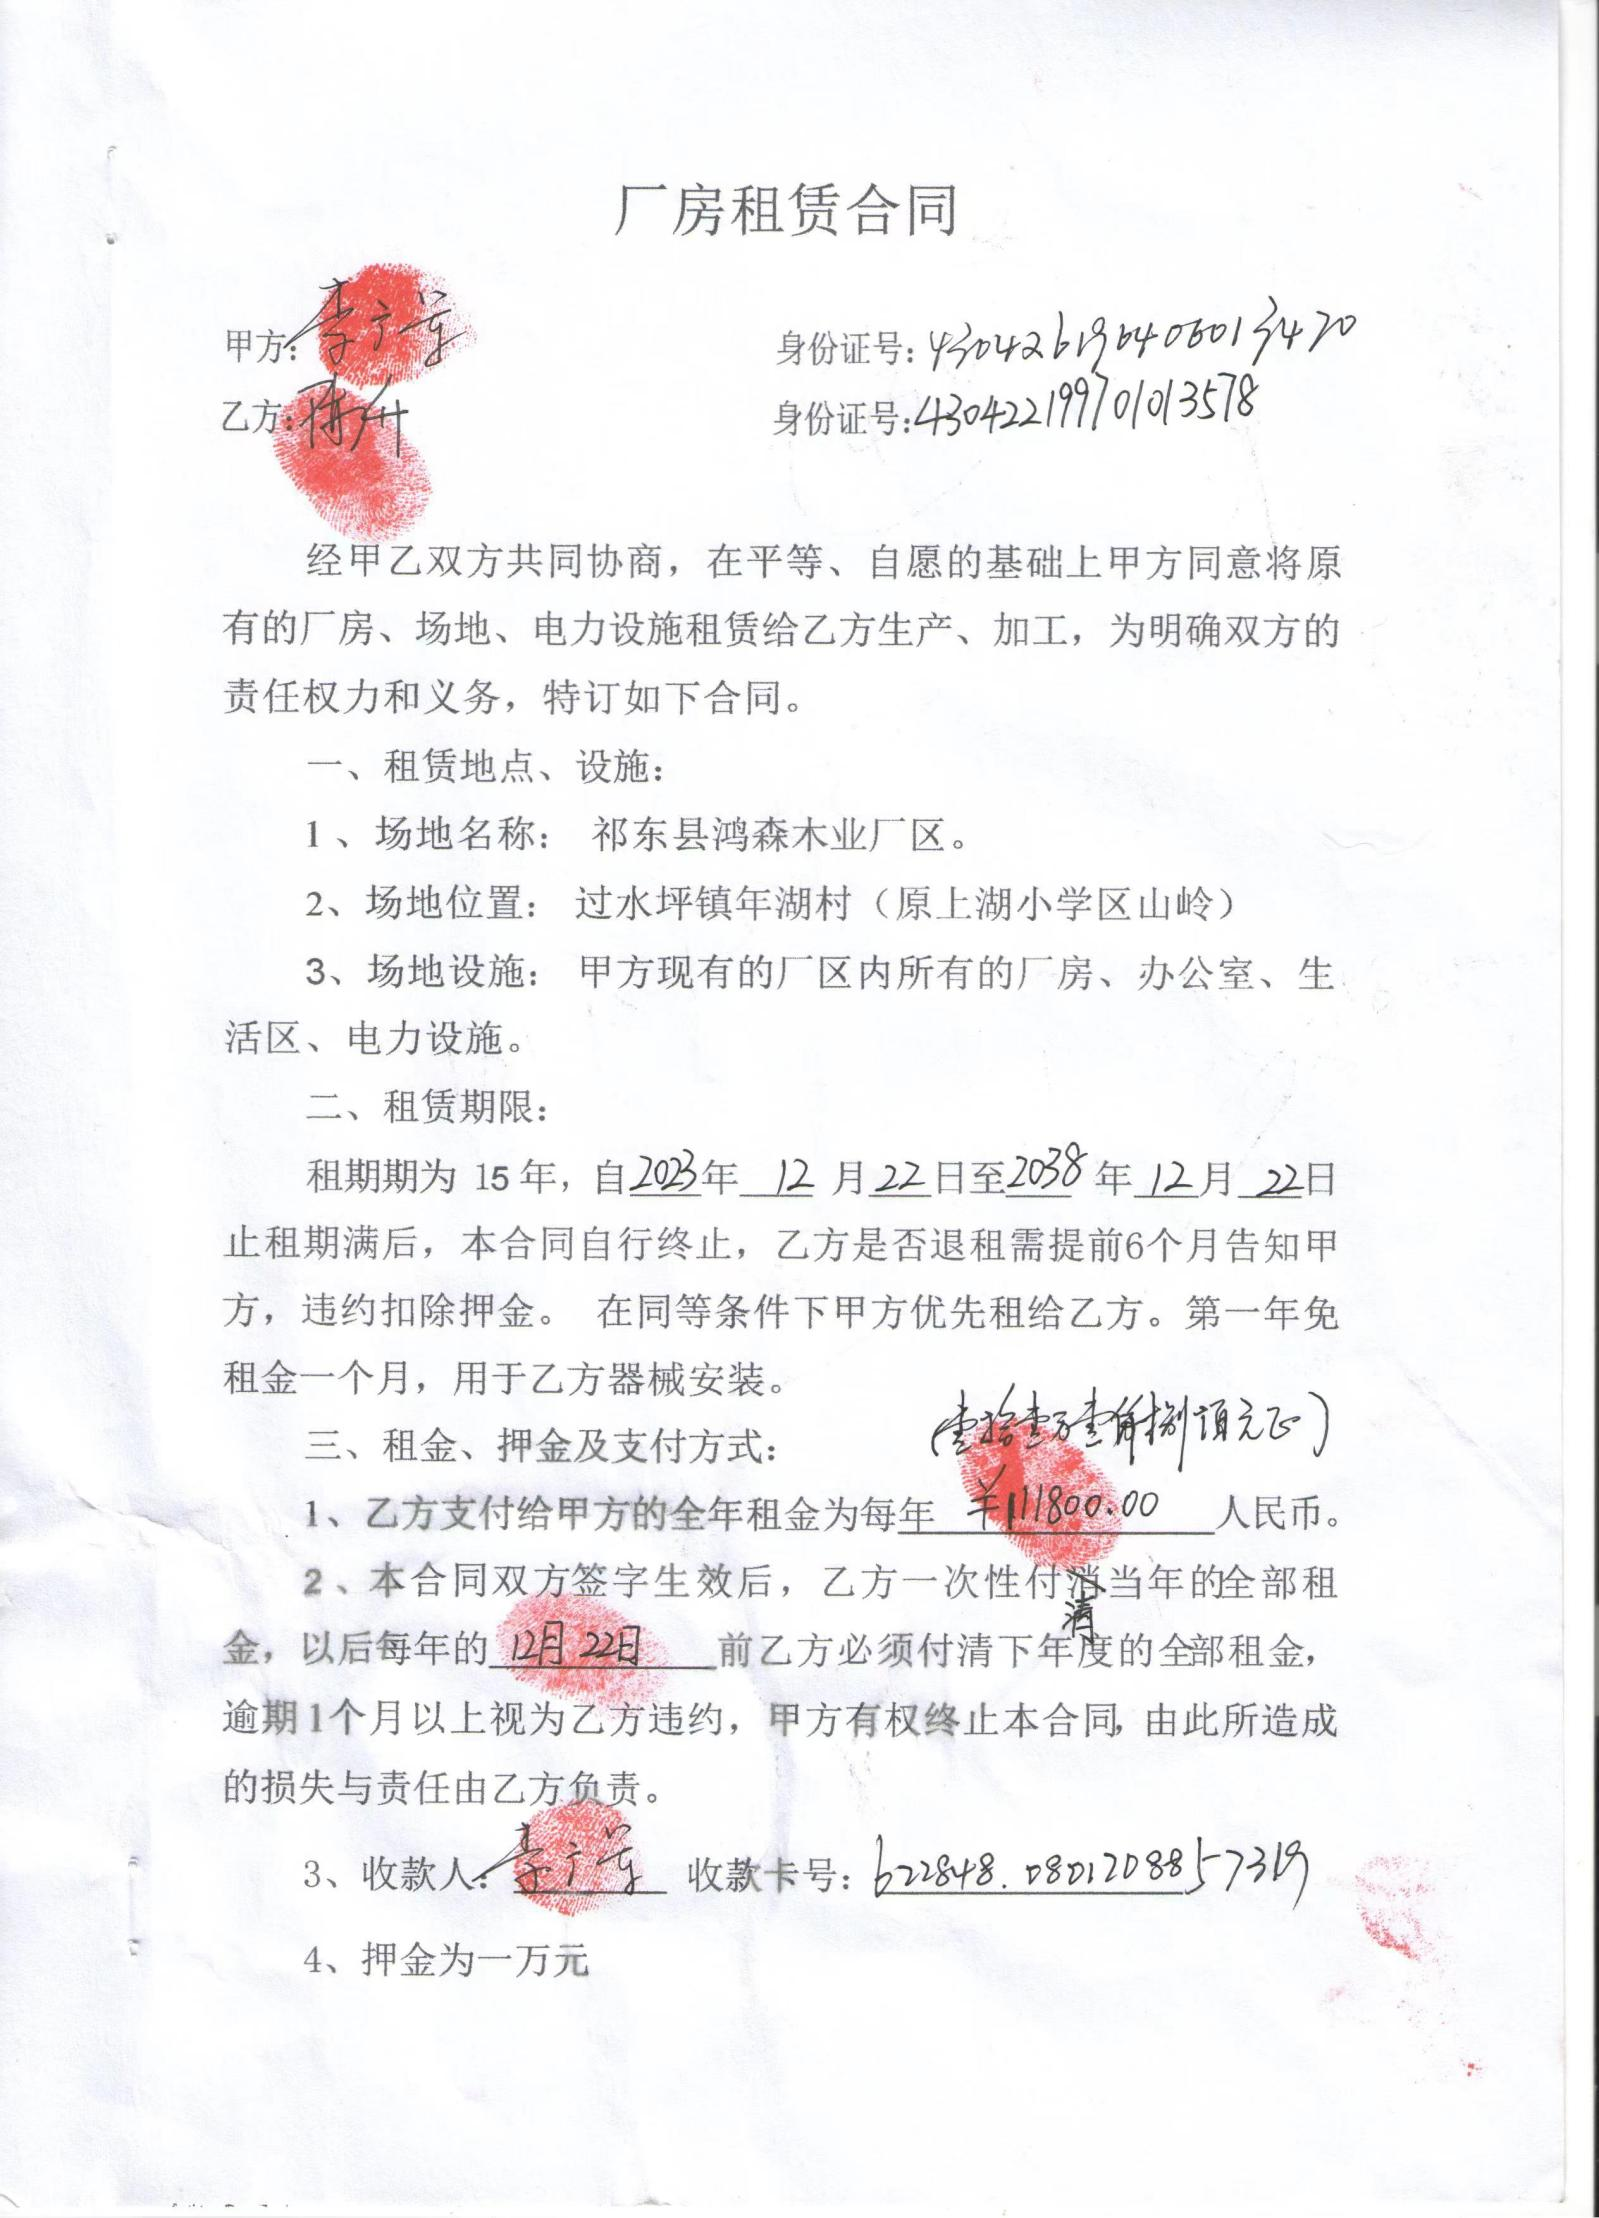 厂房租赁合同
甲方：李 身份证号：430426196406013470
乙方：陈升 身份证号：430422199701013578
经甲乙双方共同协商，在平等、自愿的基础上甲方同意将原
有的厂房、场地、电力设施租赁给乙方生产、加工，为明确双方的
责任权力和义务，特订如下合同。
一、租赁地点、设施：
1、场地名称： 祁东县鸿森木业厂区。
2、场地位置： 过水坪镇年湖村（原上湖小学区山岭）
3、场地设施： 甲方现有的厂区内所有的厂房、办公室、生
活区、电力设施。
二、租赁期限：
租期期为 15 年，自2023年 12 月22日至2038年 12月 22日
止租期满后，本合同自行终止，乙方是否退租需提前6个月告知甲
方，违约扣除押金。 在同等条件下甲方优先租给乙方。第一年免
租金一个月，用于乙方器械安装。
（壹拾壹万壹仟捌佰元正）
三、租金、押金及支付方式：
1、乙方支付给甲方的全年租金为每年 ￥111800.00 人民币。
2、本合同双方签字生效后，乙方一次性付消当年的全部租
清
金，以后每年的 12月22日 前乙方必须付清下年度的全部租金，
逾期1个月以上视为乙方违约，甲方有权终止本合同，由此所造成
的损失与责任由乙方负责。
3、收款人：李 收款卡号：622848.0801208857319
4、押金为一万元